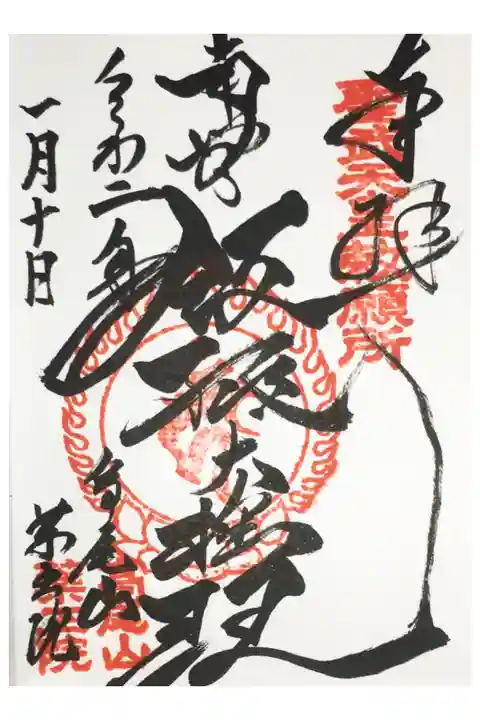 奉拝
聖武天皇勅願所
南無飯縄大権現
令和二年
一月十日
高尾山
薬王院
高尾山
薬王院